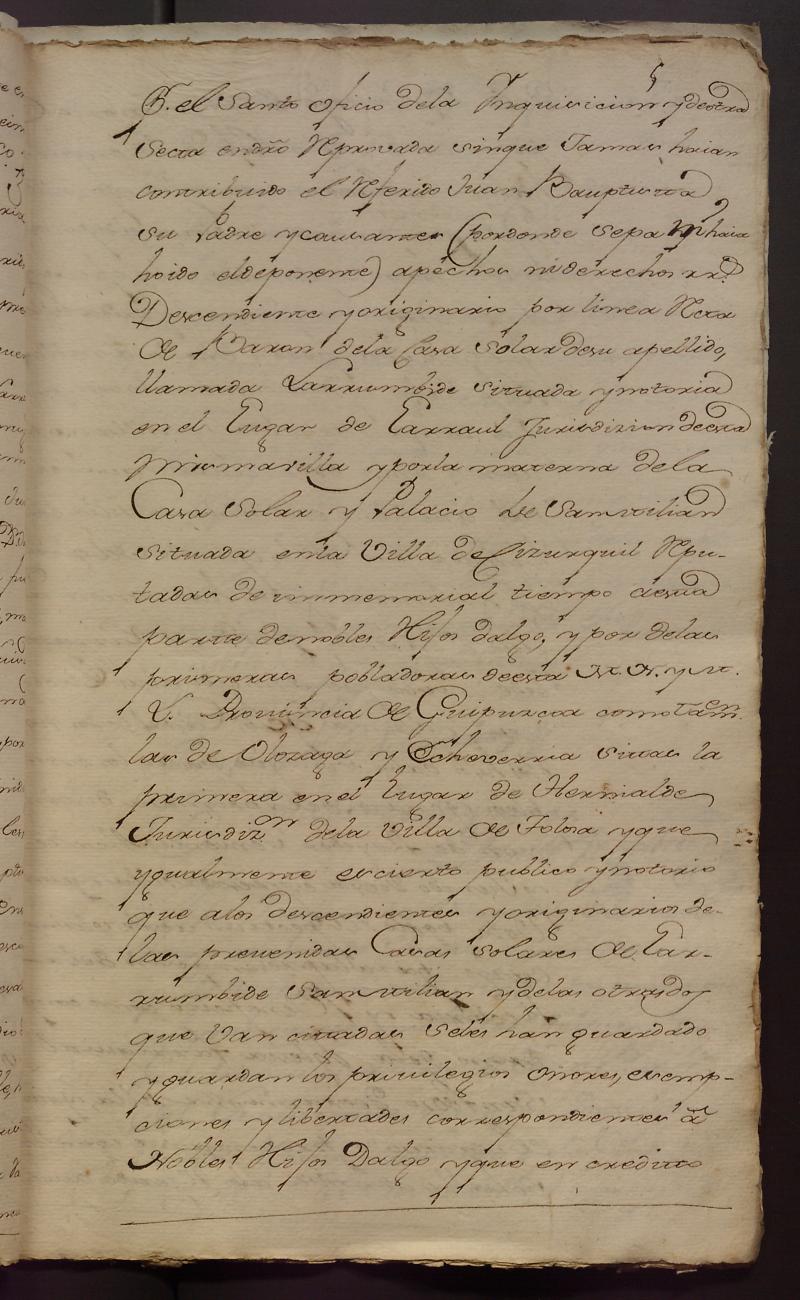 P.r el Santo oficio dela Inquisicion y de otra
Secta en dro Reprovada sin que Jamas haian
contribuido el Referido Juan Bauptista
su Padre y causantes (por donde sepa ni haia
hoido el deponente) a pechos ni derechos rr.s
Descendiente y originario por linea Recta
de Baron dela Casa Solar de su apellido,
llamada Larrumbide situada y notoria
en el Lugar de Larraul Jurisdizion de esta
misma villa y por la materna de la
Casa Solar y Palacio de Sanmilian
situada en la Villa de Cizurquil Repu-
tadas de immemorial tiempo a esta
parte de nobles Hijos dalgo, y por delas
primeras pobladoras de esta M. N. y M.
L. Provincia de Guipuzcoa como tam.en
las de Olozaga y Echeverria sitas la
primera en el Lugar de Hernialde
Jurisdiz.on dela Villa de Tolosa y que
ygualmente es cierto publico y notorio
que alos descendientes y originarios de-
las prevenidas Casas Solares de Lar-
rumbide Sanmilian y delas otras dos
que van citadas seles han guardado
y guardan los privilegios onores, exemp-
ciones y libertades correspondientes a
Nobles Hijos Dalgo y que en credito